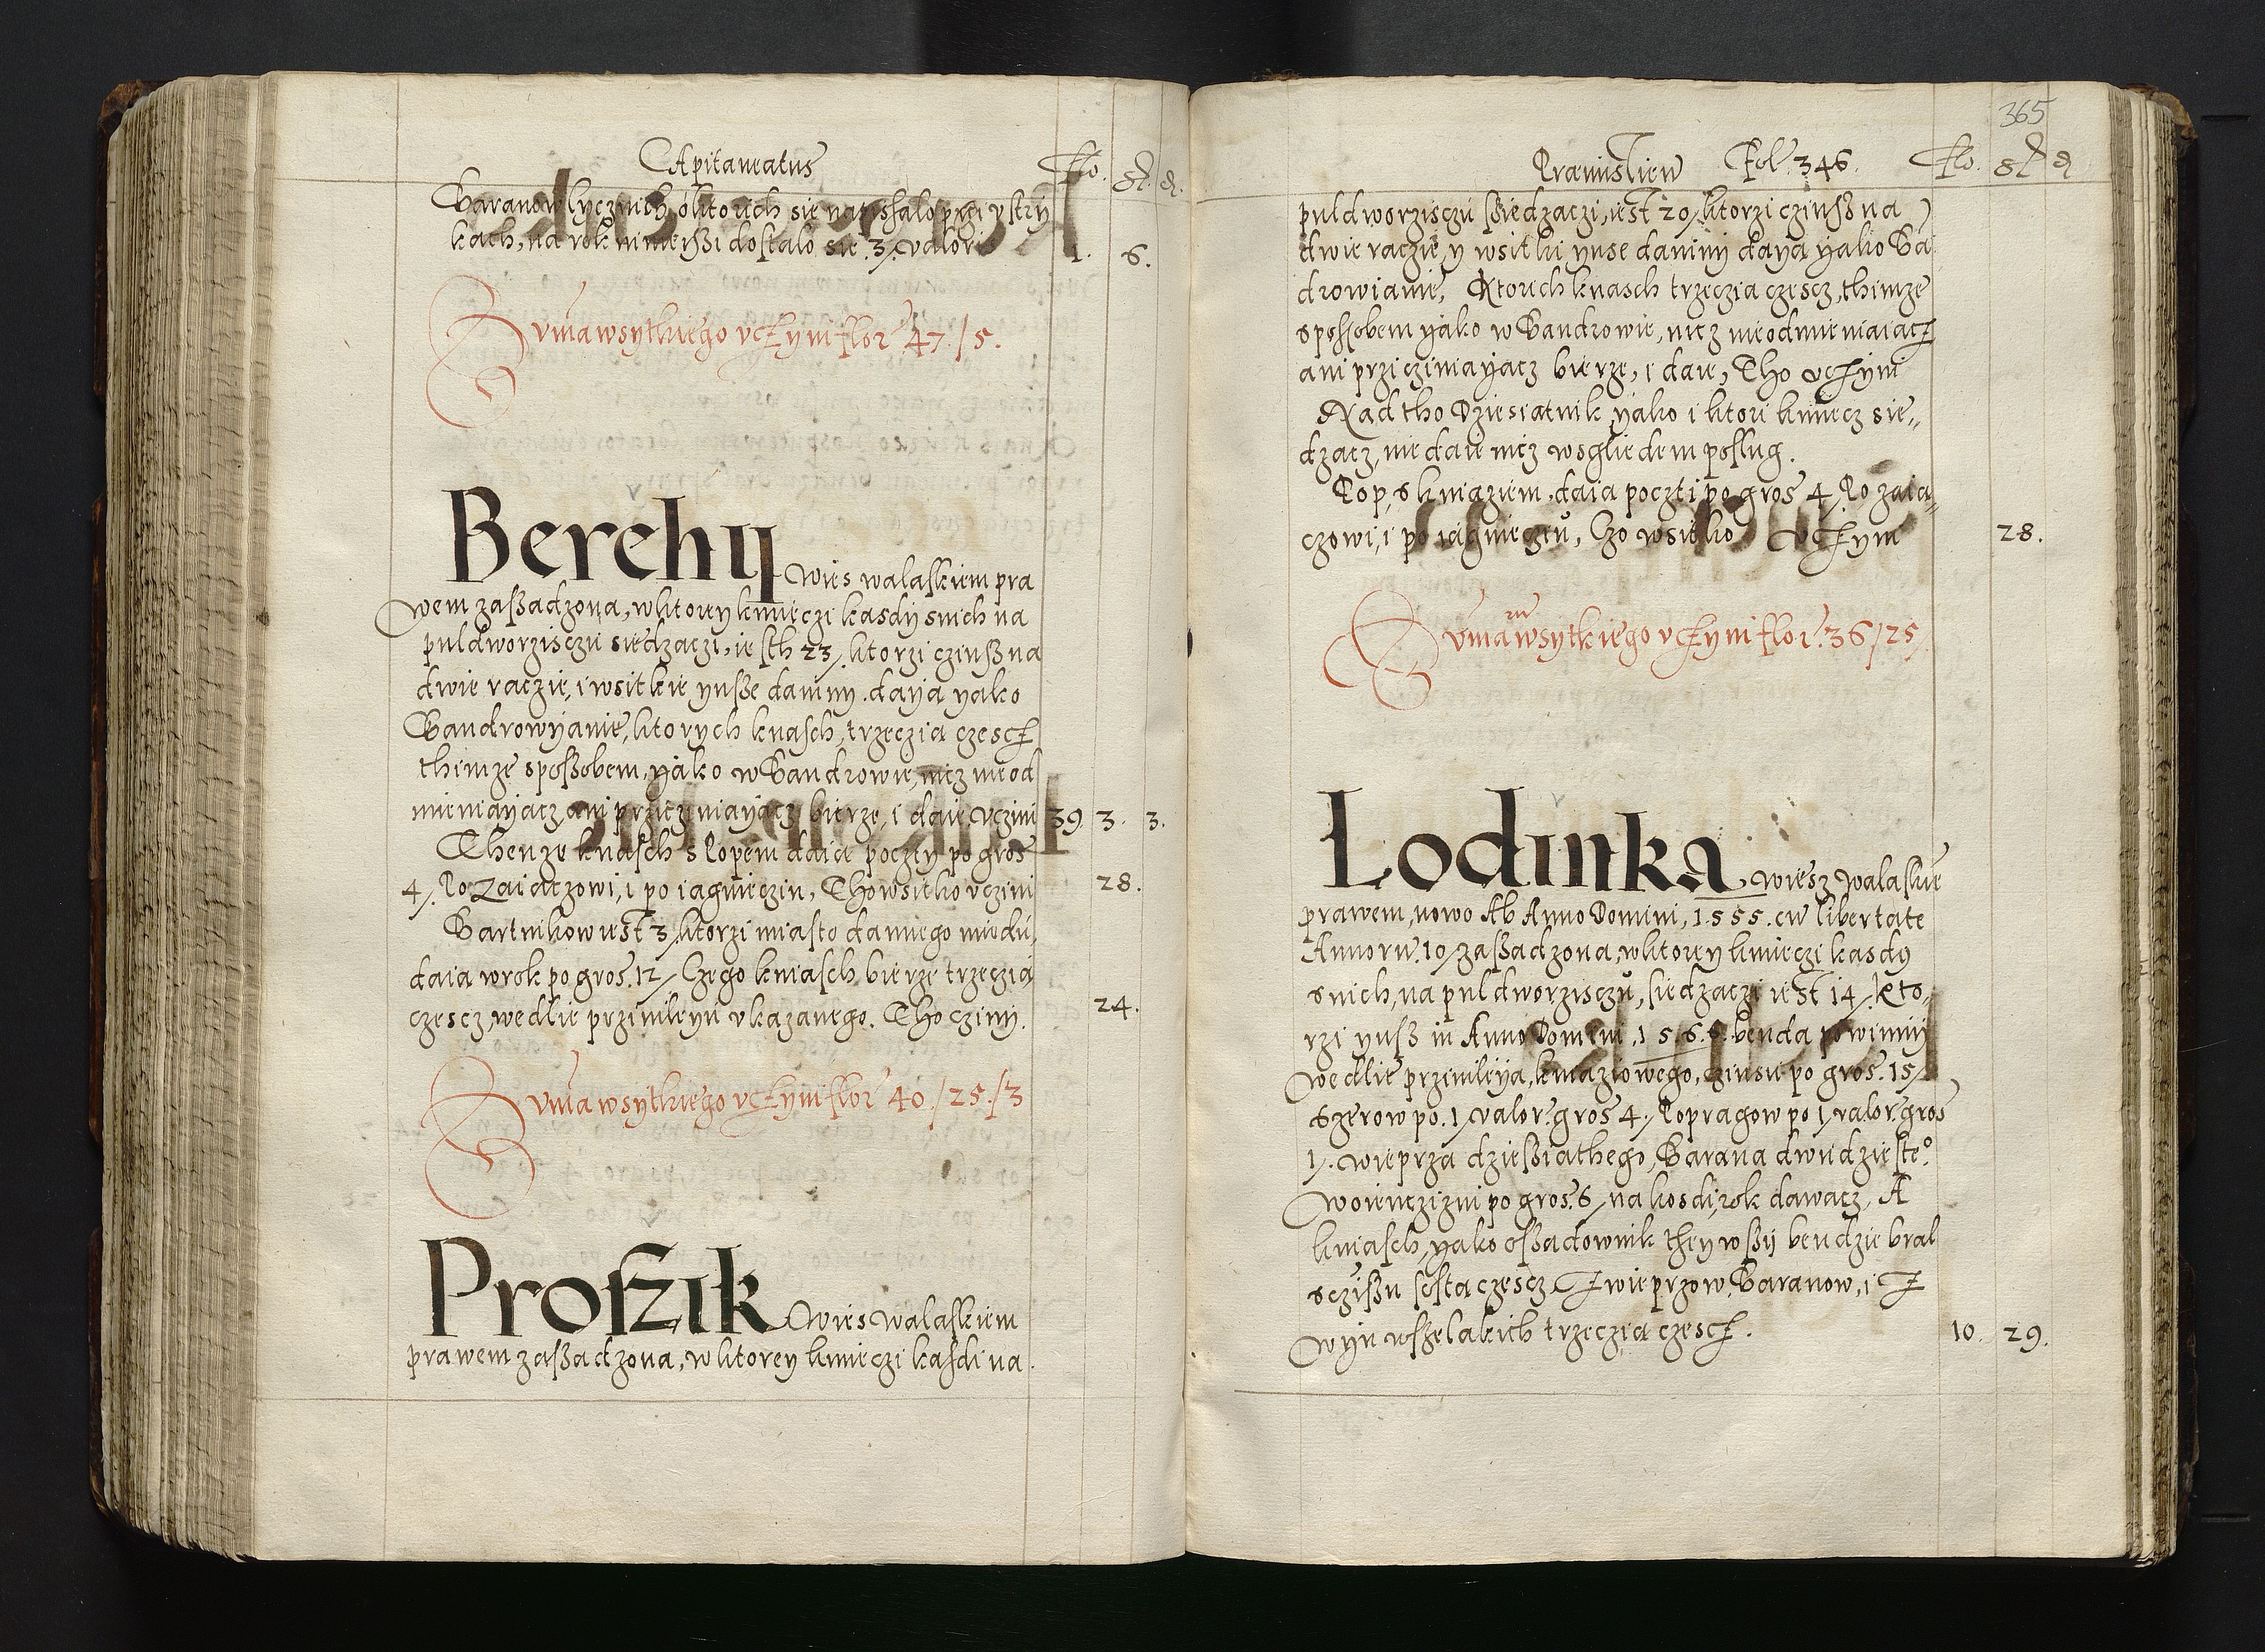 Capitaneatus Flo. gr. d.
Baranow lycznich o ktorich sie napisalo przi ustrÿ
kach, na rok ninieyßi dostalo sie .3/. valoris 1. 6.
Suma wsytkiego uczÿni flor 47/5.
Berehÿ wies walaskiem pra
wem zaßadzona, w ktorey kmieczi kasdÿ s nich na
puldworzisczu siedzaczi, iesth 23/. ktorzi czinß na
dwie raczie, i wsitkie ynsse daninÿ daÿa ÿako
Bandrowÿanie, ktorych knasch, trzeczia czescz
thimze sposßobem, ÿako w Bandrowie, nicz nieod
mieniaÿacz, ani prziczÿniaÿacz bierze, i daie, uczini 39. 3. 3.
Thenze knasch s Popem daia pocztÿ po gros
4/. Po Zaiaczowi, i po iagnieczin, Tho wsitko uczini 28.
Bartnikow iest 3/ ktorzi miasto danniego miodu,
daia w rok po gros. 12/. Czego kniasch bierze trzeczia
czescz, wedlie przivileÿu ukazanego. Tho czinÿ. 24.
Suma wsytkiego uczÿni flor 40/25/3
Proszik Wies walaskiem
prawem zaßadzona, w ktorey kmieczi kasdi na
365
Præmislien Fol. 346. Flo. gr d
puldworzisczu ßiedzaczi, iest 20/ ktorzi czinß na
dwie raczie, y wsitki ÿnse daninÿ daÿa ÿako Ba
drowianie, Ktorich knasch trzeczia czescz, thimze
spossobem ÿako w Bandrowie, nicz nieodmieniaiacz
ani prziczinaÿacz bierze, i daie, Tho uczÿni
Nad tho Dziesiatnik ÿako i ktori kmiecz sie„
dzacz, nie daie nicz wsgliedem poslug.
Pop, s kniaziem, daia poczti po gros 4/ Po zaia„
czowi, i po iagnieczin, Czo wsitko uczÿni 28.
Suma wsytkiego uczÿni flor. 36/25
Lodinka, wiesz walaskie
prawem, nowo Ab Anno Domini, 1555. cu libertate
Annoru. 10/ zaßadzona, w ktorey kmieczi kasdÿ
s nich, na puldworzisczu, siedzaczi iest 14/. Kto„
rzi ÿuß in Anno Domini, 1566. benda powinnÿ
wedlie przivileÿa, kniaziowego, czinsu po gros. 15/
Szerow po .1/ valor. gros 4/. Popragow po 1/ valor. gros
1/. wieprza dzießiathego, Barana dwudzieste°.
Woienczizni po gros. 6/ na kosdi rok dawacz, A
kniasch, ÿako oßadownik they wßÿ bendzie bral
s czißu sosta czescz z wieprzow, Baranow, i z
wÿn wszelakich trzeczia czescz. 10. 29.